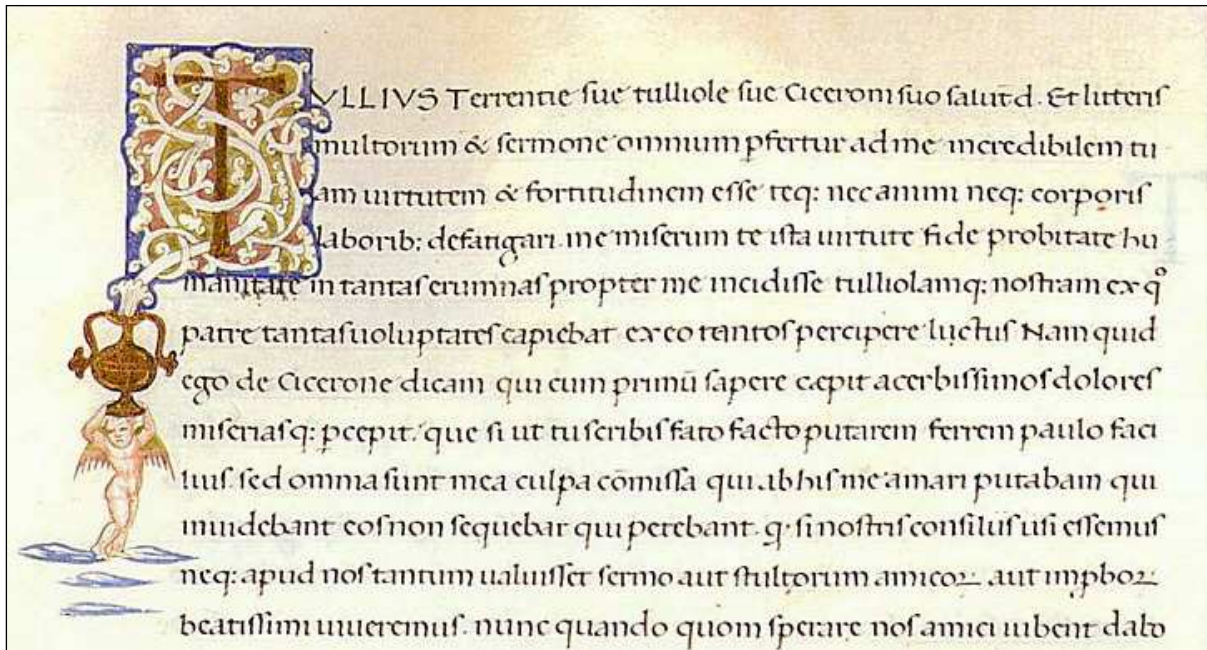 TVLLIVS Terrentie sue tulliole sue Ciceroni suo salut̄ d. Et litteris
multorum & sermone omnium p̱fertur ad me incredibilem tu
am uirtutem & fortitudinem esse teq: nec animi neq: corporis
laborib: defatigari. me miserum te ista uirtute fide probitate hu
manitate in tantas erumnas propter me incidisse tulliolamq: nostram ex qͦ
patre tantas uoluptates capiebat ex eo tantos percipere luctus Nam quid
ego de Cicerone dicam qui cum primū sapere cæpit acerbissimos dolores
miseriasq: p̱cepit. que si ut tu scribis fato facto putarem ferrem paulo faci
lius. sed omnia sunt mea culpa cōmissa qui ab his me amari putabam qui
inuidebant eos non sequebar qui petebant. q. si nostris consiliis usi essemus
neq: apud nos tantum ualuisset sermo aut stultorum amicoꝝ aut imp̱boꝝ
beatissimi uiueremus. nunc quando quom sperare nos amici iubent dabo